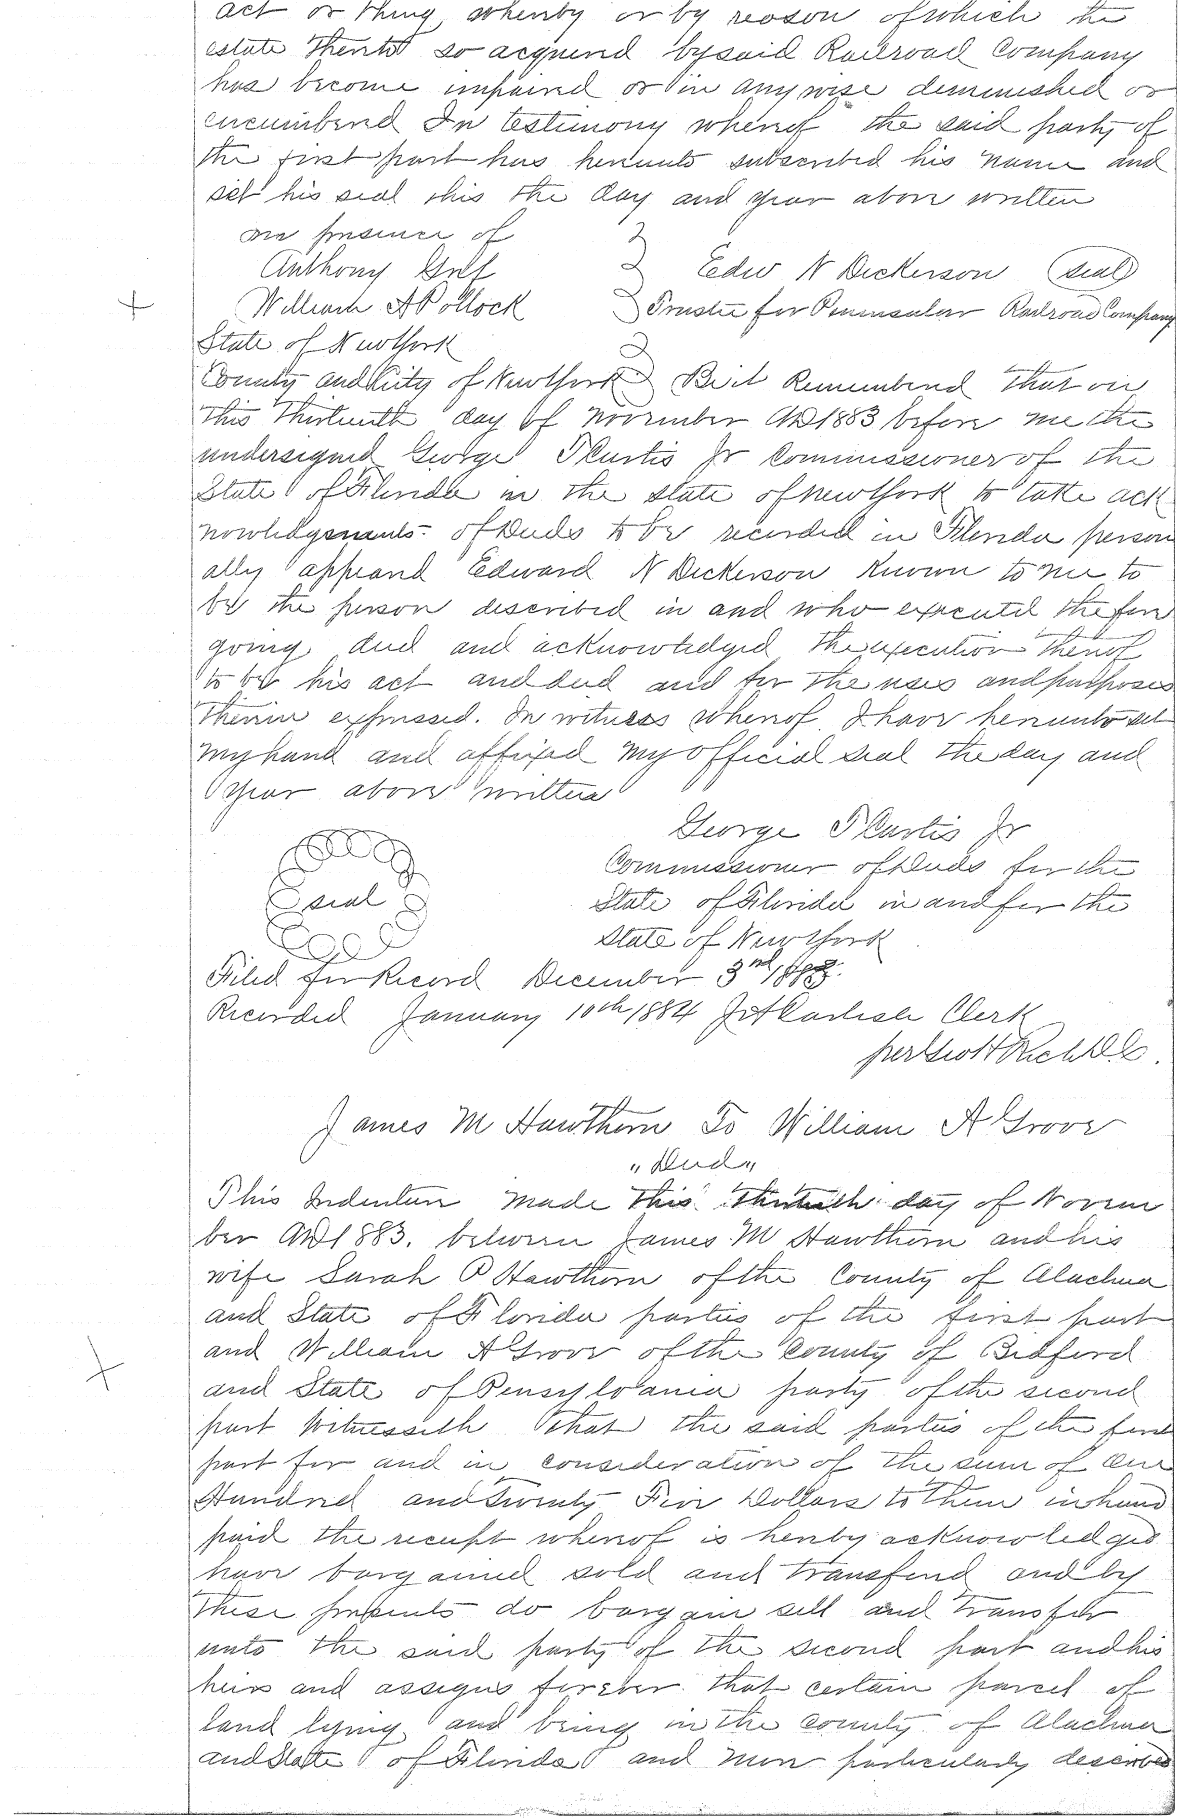 act or thing whereby or by reason of which the
estate therein so acquired by said Railroad Company
has become impaired or in anywise deminished or
encumbered In testimony whereof the said party of
the first part has hereunto subscribed his name and
set his seal this the day and year above written
in presence of
Anthony Gref
Edw N Dickerson (seal)
William A Pollock
Trustee for Peninsular Railroad Company
State of New York
County and City of New York Be it Remembered that on
this Thirteenth day of November AD 1883 before me the
undersigned George T Curtis Jr Commissioner of the
State of Florida in the state of New York to take ack
nowledgements of Deeds to be recorded in Florida person
ally appeared Edward N Dickerson Known to me to
be the person described in and who executed the fore
going deed and acknowledged the execution thereof
to be his act and deed and for the uses and purposes
therein expressed. In witness whereof I have hereunto set
my hand and affixed my official seal the day and
year above written
George T Curtis Jr
Commissioner of Deeds for the
seal
State of Florida in and for the
State of New York
Filed for Record December 3rd 1883.
Recorded January 10th 1884 J A Carlisle Clerk
per Geo H Rich D.C.
James M Hawthorn To William A Grove
"Deed"
This Indenture made this thirtieth day of Novem
ber AD 1883. between James M Hawthorn and his
wife Sarah P Hawthorn of the County of Alachua
and State of Florida parties of the first part
and William A Grove of the County of Bedford
and State of Pensylvania party of the second
part Witnesseth that the said parties of the first
part for and in consideration of the sum of One
Hundred and Twenty Five Dollars to them in hand
paid the receipt whereof is hereby acknowledged
have bargained sold and transfered and by
these presents do bargain sell and transfer
unto the said party of the second part and his
heirs and assigns forever that certain parcel of
land lying and being in the county of Alachua
and State of Florida and more particularly described